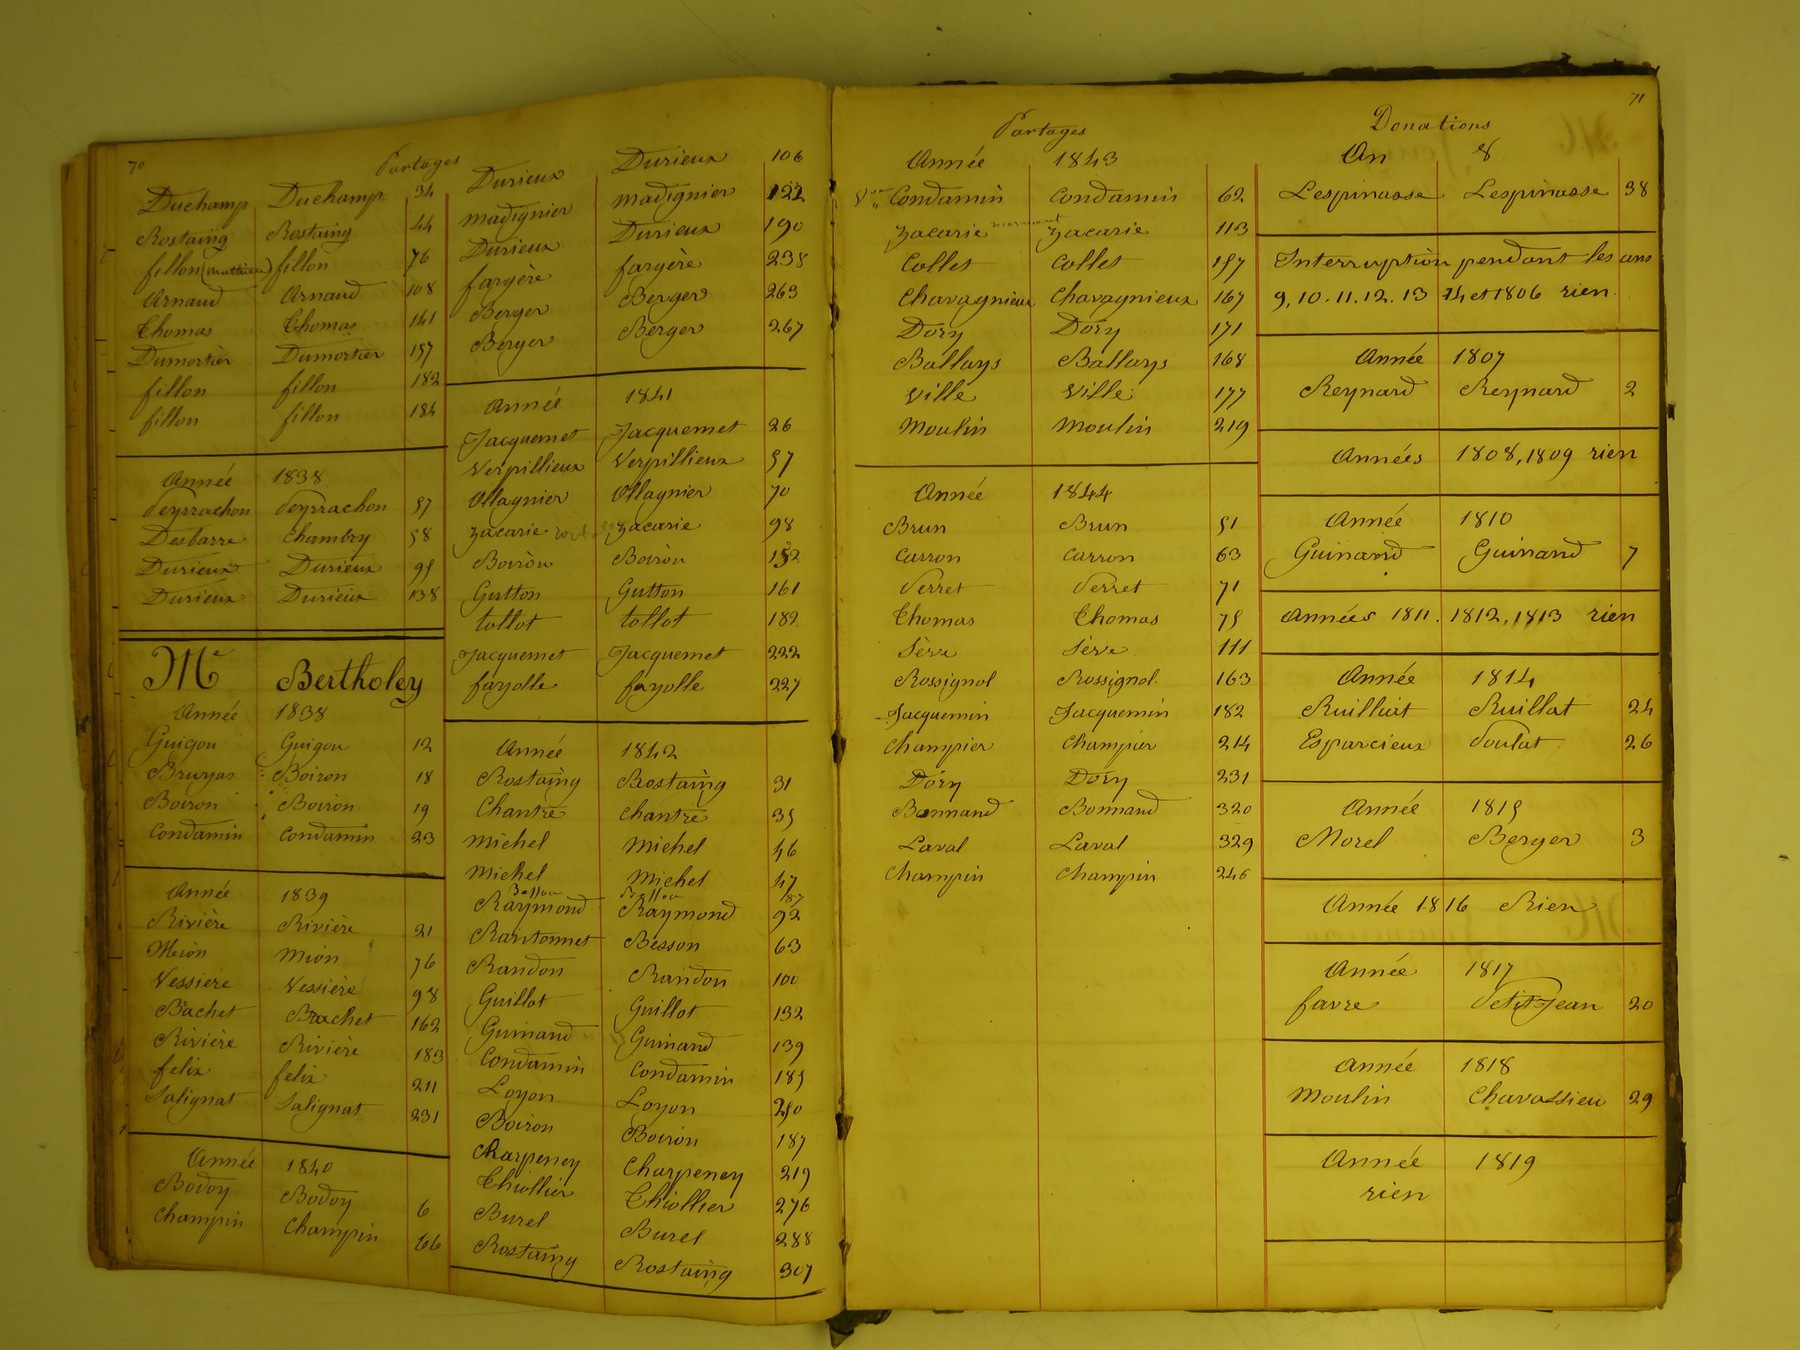 70
Partages
Duchamp Duchamp 34
Rostaing Rostaing 44
fillon (mathieu) fillon 76
Arnaud Arnaud 108
Thomas Thomas 141
Dumortier Dumortier 157
fillon fillon 182
fillon fillon 184
Année 1838
Peyrrachon Peyrrachon 57
Desbarre Chambry 58
Durieux Durieux 95
Durieux Durieux 138
Me Bertholey
Année 1838
Guigou Guigou 12
Bruyas Boiron 18
Boiron Boiron 19
Condamin Condamin 23
Année 1839
Rivière Rivière 21
Mion Mion 76
Vessiere Vessière 98
Bachet Brachet 162
Rivière Rivière 183
felix felix 211
Salignat Salignat 231
Année 1840
Bodoy Bodoy 6
Champin Champin 66
Durieux Durieux 106
Madignier Madignier 122
Durieux Durieux 190
fargère fargère 238
Berger Berger 263
Berger Berger 267
Année 1841
Jacquemet Jacquemet 26
Verpillieux Verpillieux 57
Ollagnier Ollagnier 70
Zacarie Zacarie 98
Boiron Boiron 152
Gutton Gutton 161
tollot tollot 189
Jacquemet Jacquemet 222
fayolle fayolle 227
Année 1842
Rostaing Rostaing 31
Chantre Chantre 35
Michel Michel 46
Michel Michel 47
87
Raymond Raymond 92
Besson 63
Randon Randon 100
Guillot Guillot 132
Guinand Guinand 139
Condamin Condamin 185
Loyon Loyon 250
Boiron Boiron 187
Charpeney Charpeney 219
Thiollier Thiollier 276
Burel Burel 288
Rostaing Rostaing 307
71
Partages
Année 1843
Condamin Condamin 62
Zacarie Zacarie 113
Collet Collet 157
Chavagnieux Chavagnieux 167
Dory Dory 171
Ballays Ballays 168
Ville Ville 177
Moulin Moulin 219
Année 1844
Brun Brun 51
Carron Carron 63
Verret Verret 71
Thomas Thomas 75
Sève Sève 111
Rossignol Rossignol 163
Jacquemin Jacquemin 182
Champier Champier 214
Dory Dory 231
Bonnand Bonnand 320
Laval Laval 329
Champin Champin 246
Donations
An 8
Lespinasse Lespinasse 38
Interruption pendant les ans
9, 10. 11. 12. 13 14 et 1806 rien
Année 1807
Reynard Reynard 2
Années 1808, 1809 rien
Année 1810
Guinand Guinand 7
Années 1811. 1812, 1813 rien
Année 1814
Ruilliat Ruillat 24
Esparcieux Poulat 26
Année 1815
Morel Berger 3
Année 1816 Rien
Année 1817
favre Petit Jean 20
Année 1818
Moulin Chavassieu 29
Année 1819
rien